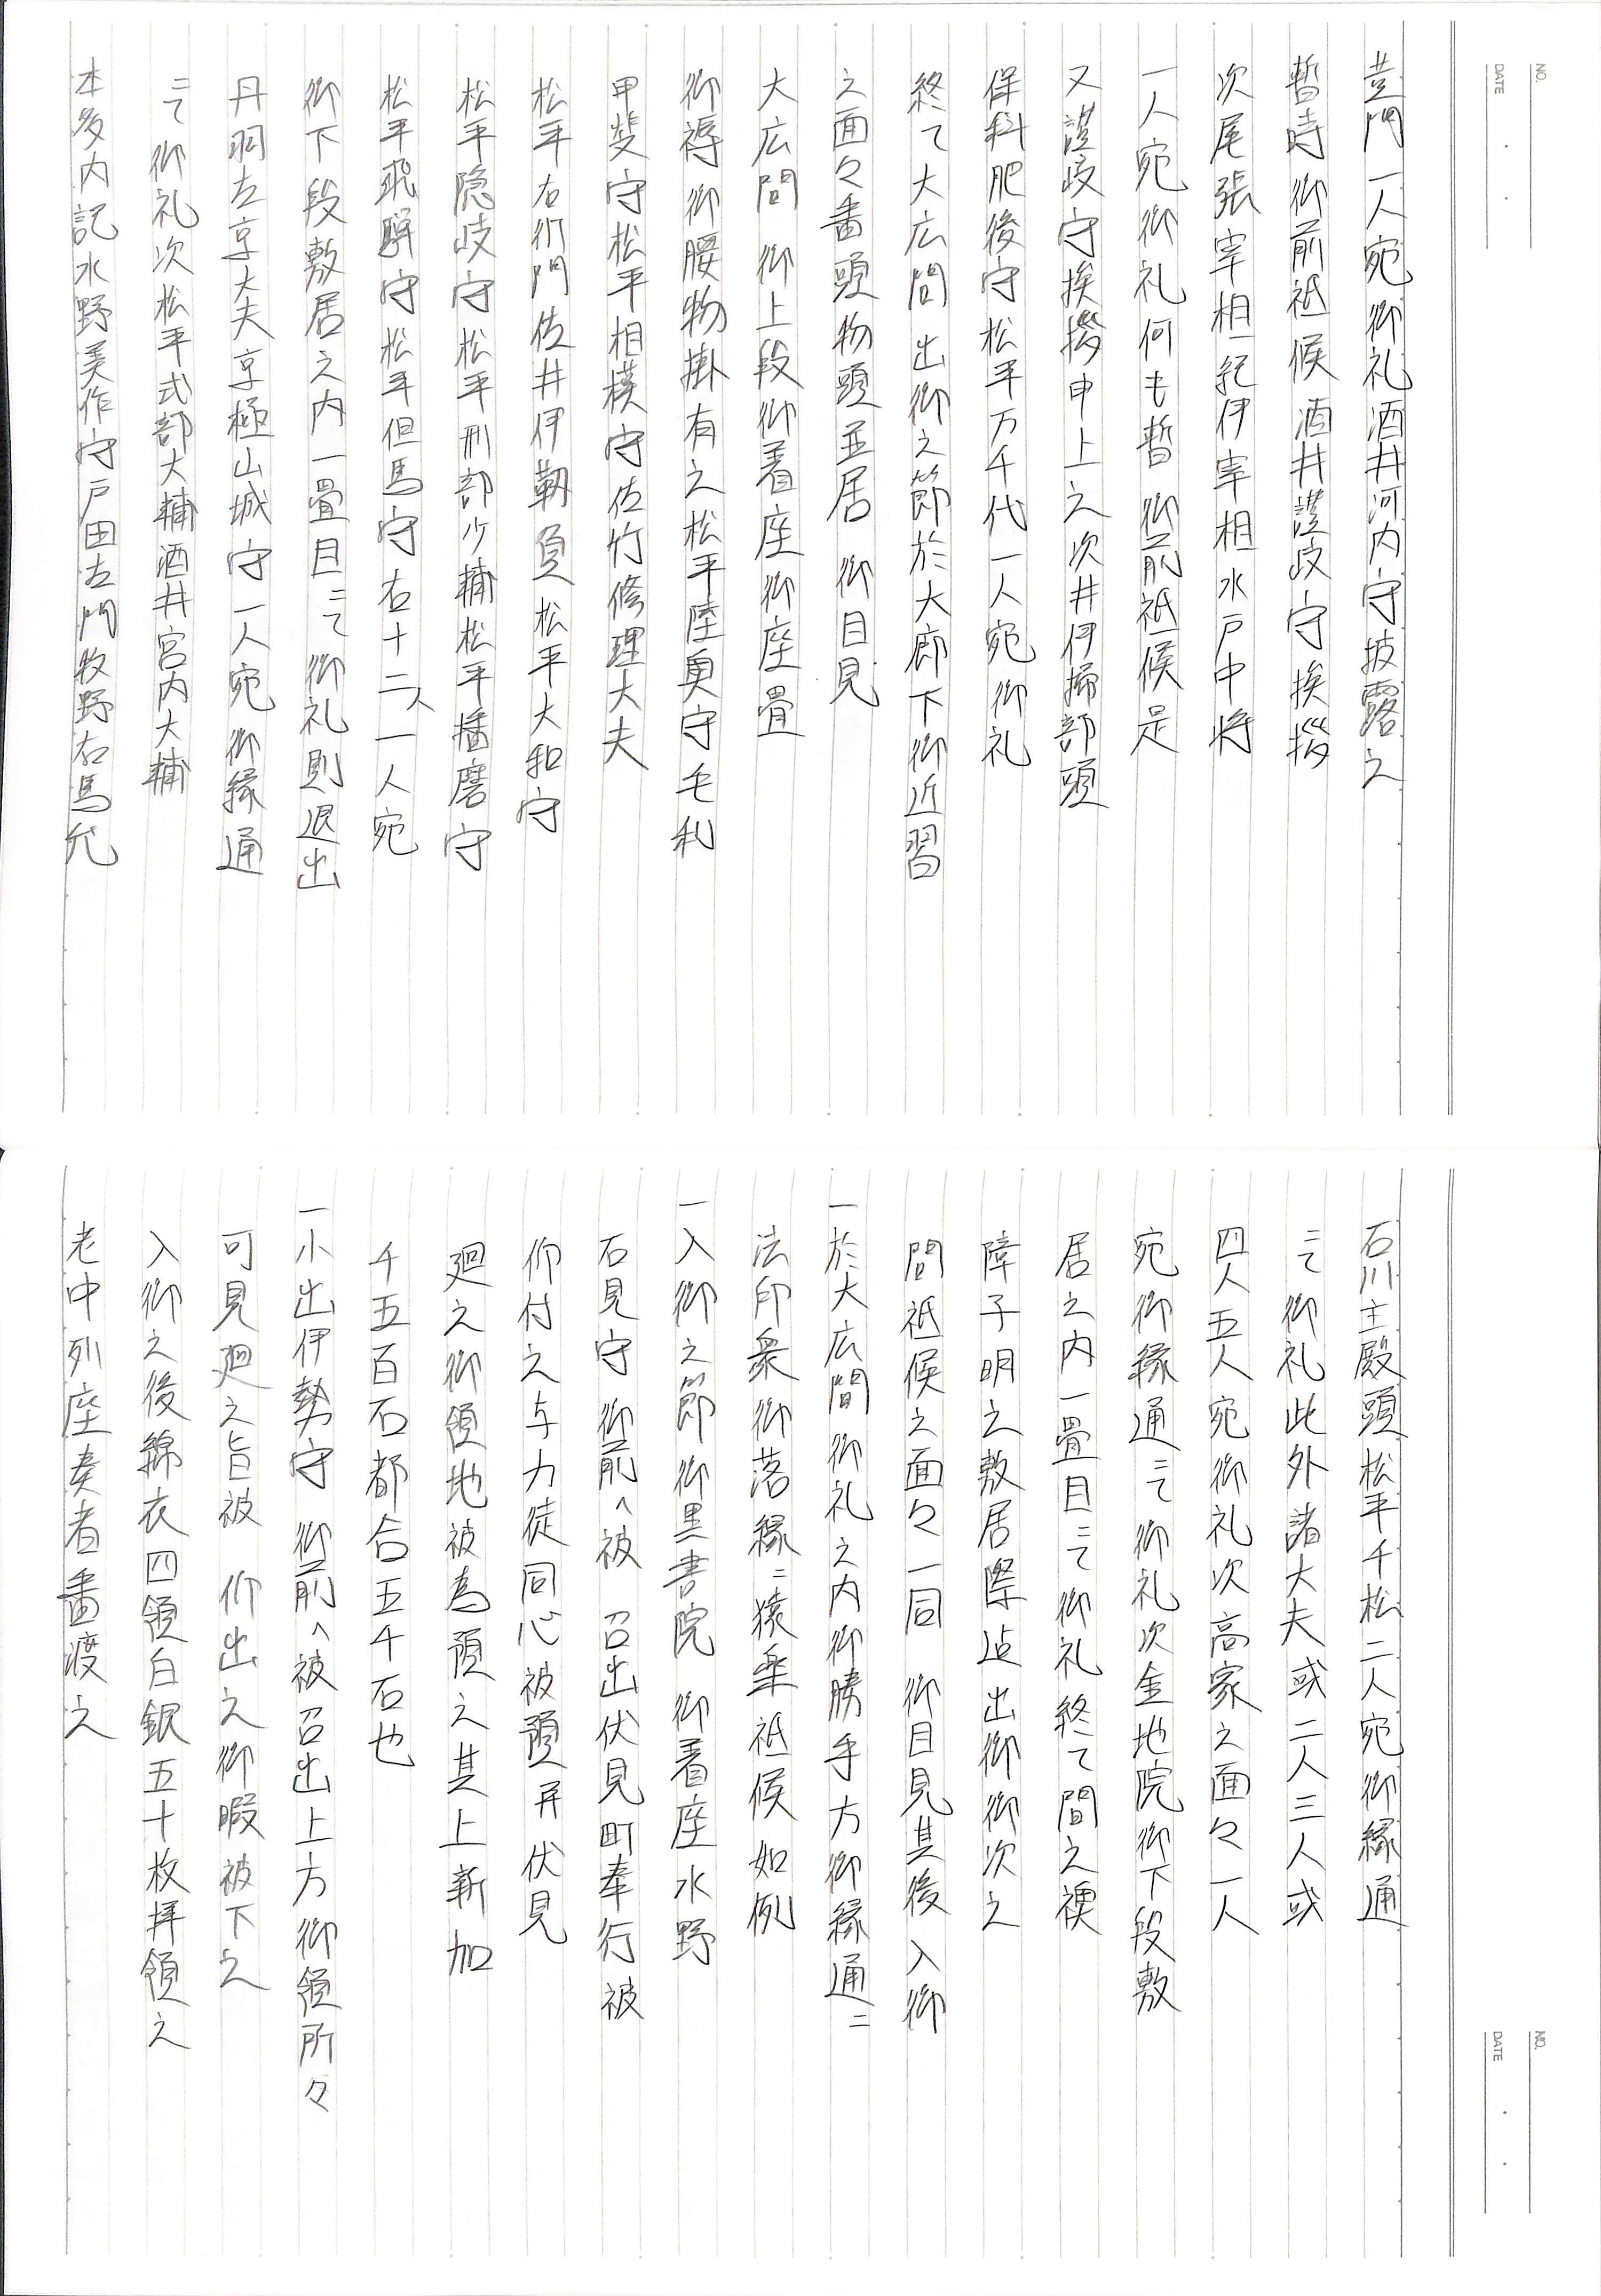 NO.
DATE
黄門一人宛御礼酒井河内守披露之
暫時 御前祗候酒井讃岐守挨拶
次尾張宰相紀伊宰相水戸中将
一人宛御礼何も暫 御前祗候是
又讃岐守挨拶申上之次井伊掃部頭
保科肥後守松平万千代一人宛御礼
終て大広間 出御之節於大廊下御近習
之面々番頭物頭並居 御目見
大広間 御上段御着座御座畳
御褥御腰物掛有之松平陸奥守毛利
甲斐守松平相模守佐竹修理大夫
松平右衛門佐井伊靱負松平大和守
松平隠岐守松平刑部少輔松平播磨守
松平飛騨守松平但馬守右十二人一人宛
御下段敷居之内一畳目ニて 御礼則退出
丹羽左京大夫京極山城守一人宛御縁通
ニて御礼次松平式部大輔酒井宮内大輔
本多内記水野美作守戸田左門牧野右馬允
NO.
DATE
石川主殿頭松平千松二人宛御縁通
ニて御礼此外諸大夫或二人三人或
四人五人宛御礼次高家之面々一人
宛御縁通ニて御礼次金地院御下段敷
居之内一畳目ニて御礼終て間之襖
障子明之敷居際迠出御御次之
間祗候之面々一同 御目見其後入御
一於大広間御礼之内御勝手方御縁通ニ
法印衆御落縁ニ猿楽祗候如例
一入御之節御黒書院 御着座水野
石見守 御前へ被 召出伏見町奉行被
仰付之与力徒同心被預并伏見
廻之御領地被為預之其上新加
千五百石都合五千石也
一小出伊勢守 御前へ被召出上方御領所々
可見廻之旨被 仰出之御暇被下之
入御之後綿衣四領白銀五十枚拝領之
老中列座奏者番渡之